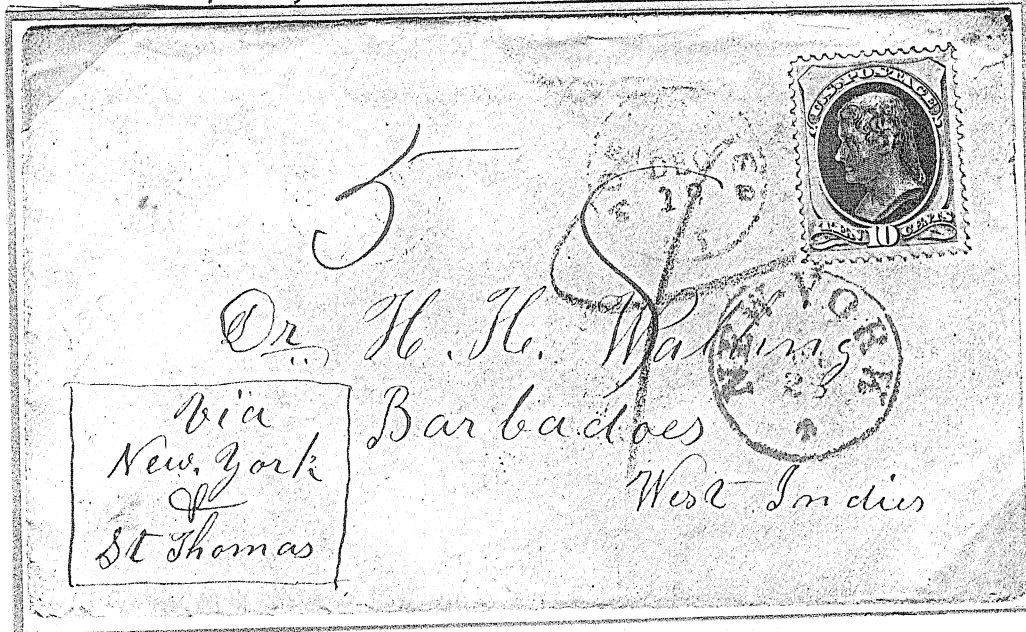 U.S. POSTAGE
TEN 10 CENTS
5
DEC
19
NEW YORK
Dr H. H.
Barbadoes
West Indies
via
New York
&
St Thomas